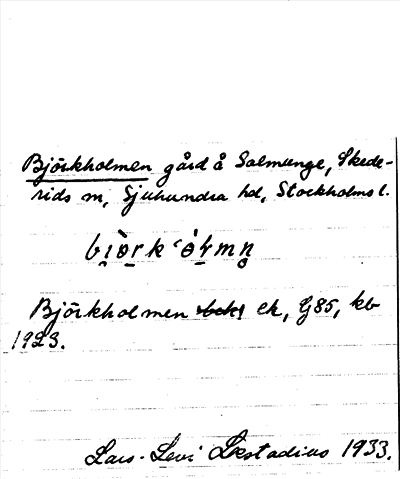 Björkholmen gård å Salmunge, Skede-
rids sn, Sjuhundra hd, Stockholms l.
Björkholmen ek, G85, kb
1923.
Lars-Levi Læstadius 1933.